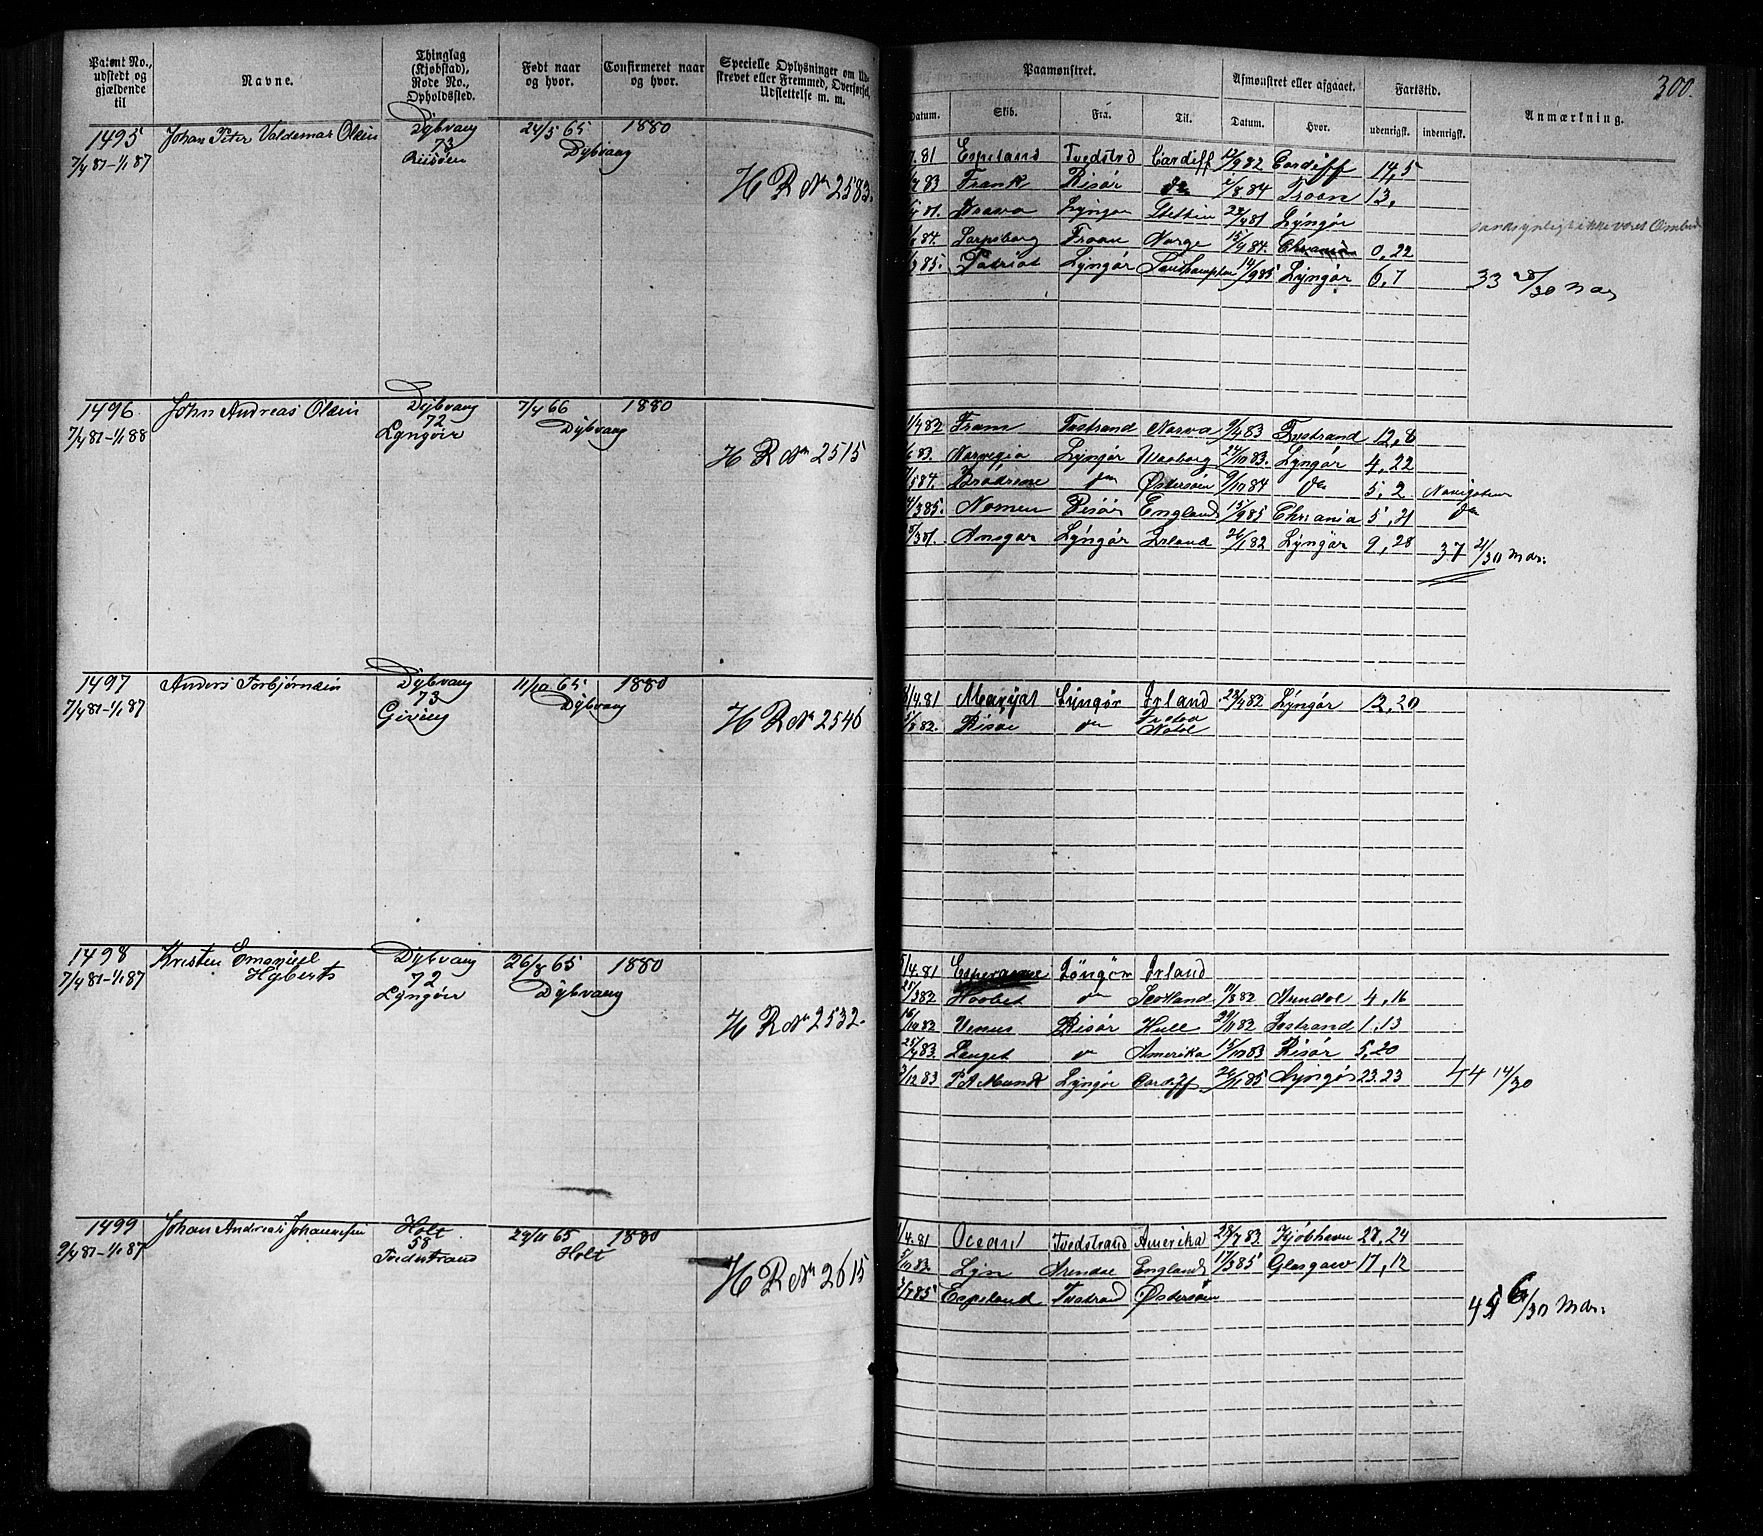 300.
Patent No., udstedt og gjældende til
Navne.
Thinglag (Kjøbstad), Rode No., Opholdssted.
Født naar og hvor.
Confirmeret naar og hvor.
Specielle Oplysninger om Udskrevet eller Fremmed, Overførsel, Udslettelse m. m.
Paamønstret.
Afmønstret eller afgaaet.
Fartstid.
Anmærkning.
Datum. Skib. Fra. Til. Datum. Hvor. udenrigsk. indenrigsk.
1495 Johan Peter Valdemar Olsen Dybvaag 24/5 65 1880
7/4 81-1/1 87 73 Dybvaag
Riisøen
H R No 2583.
81 Espeland Tvedstrd Cardiff 12/9 82 Cardiff 14,5
83 Frank Risør do 2/8 84 Troon 13,
81. Lyngør Stettin 24/4 81 Lyngør
84. Sarpsborg Troon Norge 15/9 84. 0,22
85. Patriot Lyngør Southampton 14/9 85 Lyngør 6,7
33 28/30 Mdr
1496 John Andreas Olsen Dybvaag 7/4 66 1880
7/4 81-1/1 88 72 Dybvaag
Lyngøer
H R No 2515
1/4 82 Fram Tvstrand Narva 9/4 83 Tvstrand 12,8
83. Norvegia Lyngør 24/10 83. Lyngør 4,22
/5 84. Brødrene do Østersøen 9/10 84 do 5,2 Navigateur
/3 85. Nornen Risør England 15/9 85 Chrania 5,21 do
/3 81. Ansgar Lyngør Irland 26/1 82 Lyngør 9,28
37 21/30 Mdr.
1497 Anders Torbjørnsen Dybvaag 11/10 65 1880
7/4 81-1/1 87 73 Dybvaag
Giving
H R No 2546
/4 81 Lyngør Irland 23/4 82 Lyngør 12,20
/8 82. Risøe do
1498 Kristen Emanuel Dybvaag 26/8 65 1880
7/4 81-1/1 87 Hyberts 72 Dybvaag
Lyngøer
H R No 2532.
5/4 81 Esperance Lyngør Irland
25/3 82 Haabet do Scotland 11/8 82 Arendal 4,16
16/10 82 Venus Risør Hull 29/11 82 Tvstrand 1,13
25/4 83. do Amerika 15/10 83 Risør 5,20
3/12 83 P A Munch Lyngør Cardiff 26/11 85 Lyngør 23.23
44 14/30
1499 Johan Andreas Johannesen Holt 29/11 65 1880
9/4 81-1/1 87 58 Holt
Tvedestrand
H R No 2615
/4 81 Ocean Tvedstrand Amerika 28/7 83. Kjøbhavn 27,24
5/10 83. Lyn Arendal England 17/3 85 Glasgow 17,12
/4 85 Espeland Tvstrand Østersøen
45 6/30 Mdr.